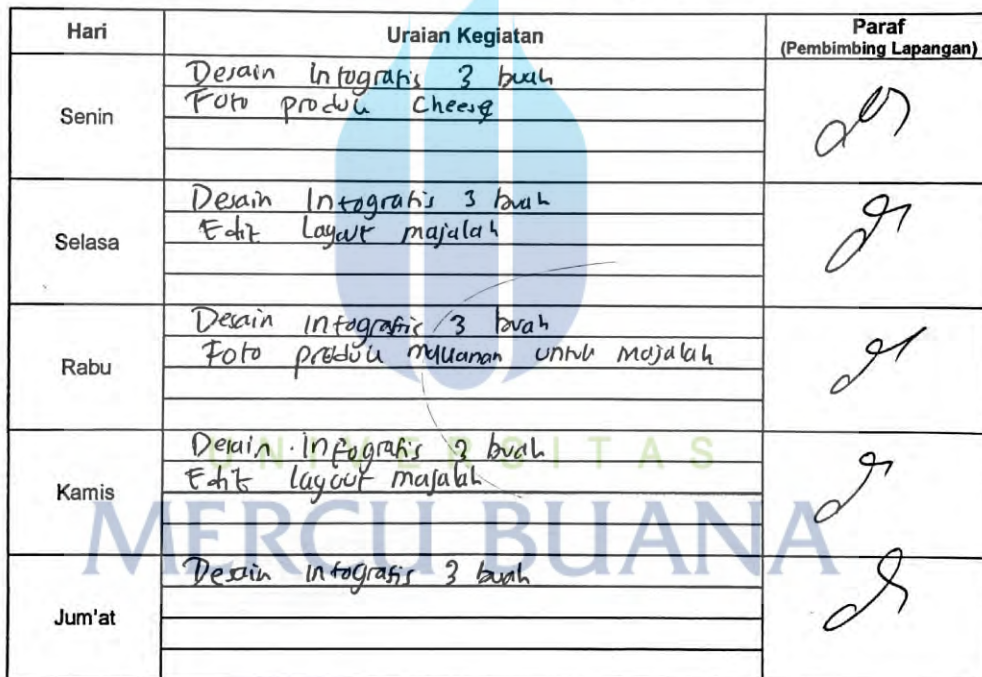 Hari Uraian Kegiatan Paraf
(Pembimbing Lapangan)
Senin
Desain Infografis 3 buah
Foto produk Cheese
Selasa
Desain Infografis 3 buah
Edit Layout majalah
Rabu
Desain infografis 3 buah
Foto produk makanan untuk majalah
Kamis
Desain Infografis 3 buah
Edit layout majalah
UNIVERSITAS
MERCU BUANA
Jum'at
Desain infografis 3 buah